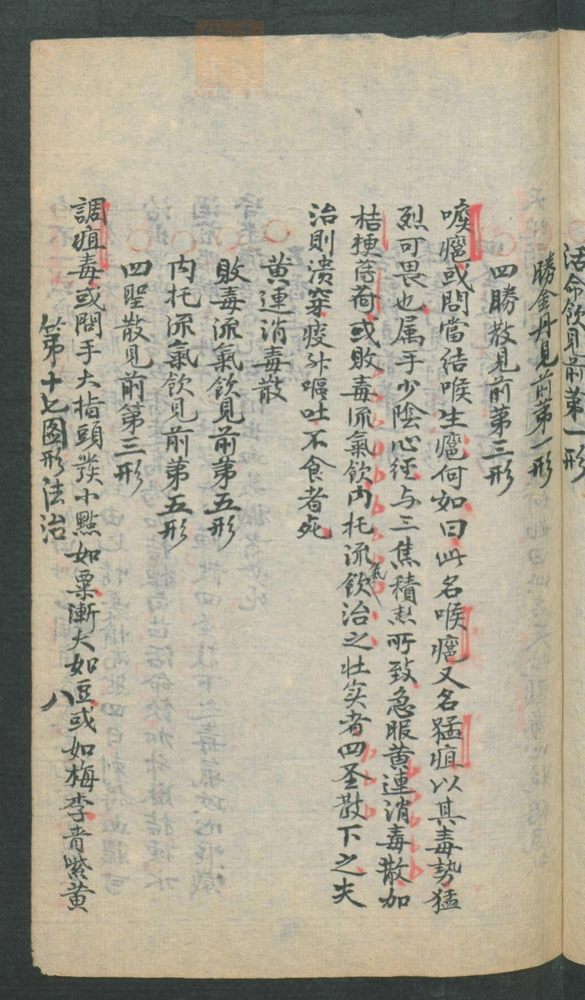 活命飲見前第一形
勝金丹見前第一形
四勝散見前第三形
喉癰或問當結喉生癰何如曰此名喉癰又名猛疽以其毒勢猛
烈可畏也属手少陰心經与三焦積熱所致急服黄連消毒散加
桔梗薄荷或敗毒流氣飲内托流氣飲治之壮实者四圣散下之失
治則潰穿瘦外嘔吐不食者死
黄連消毒散
敗毒流氣飲見前第五形
内托流氣飲見前第五形
四聖散見前第三形
調疽毒或問手大指頭發小點如粟漸大如豆或如梅李青紫黄
第十七圖形法治
八